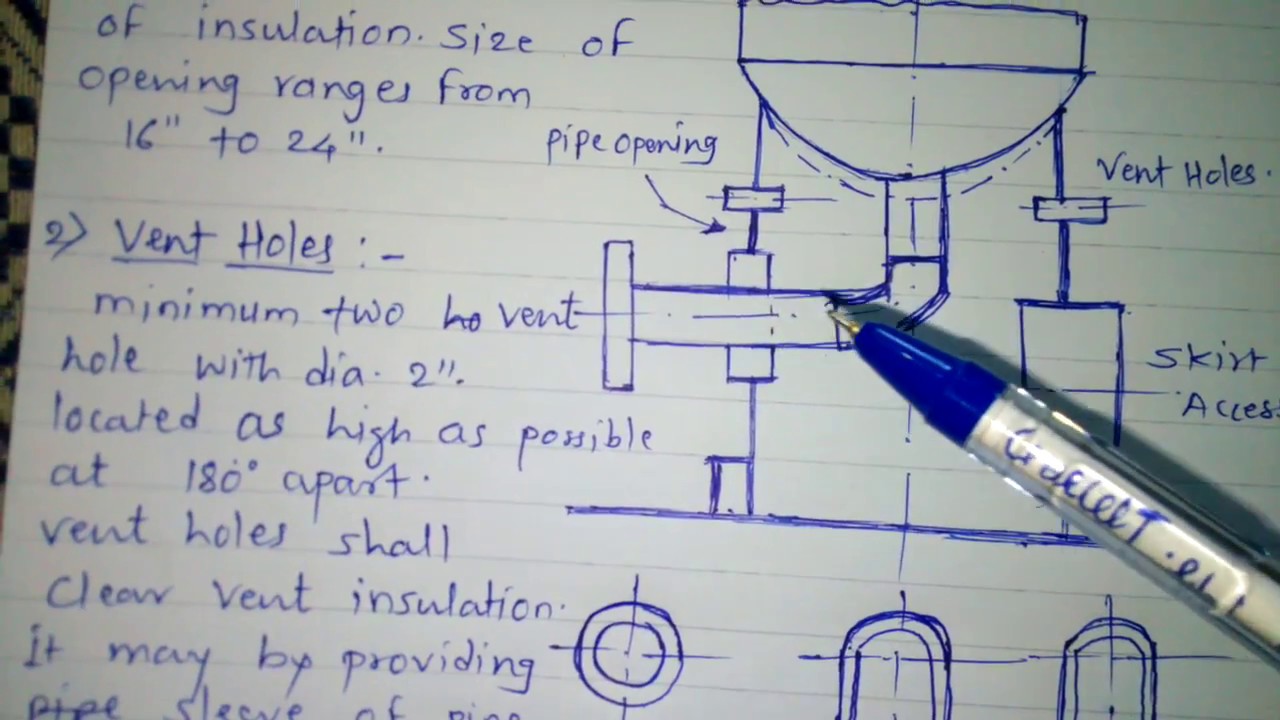 of insulation. Size of
opening ranges from
16" to 24".
2) Vent Holes :-
minimum two ho vent
hole with dia. 2".
located as high as possible
at 180° apart.
vent holes shall
Clear vent insulation.
It may by providing
pipe sleeve of pipe
pipe opening
Vent Holes.
Skirt
Acces